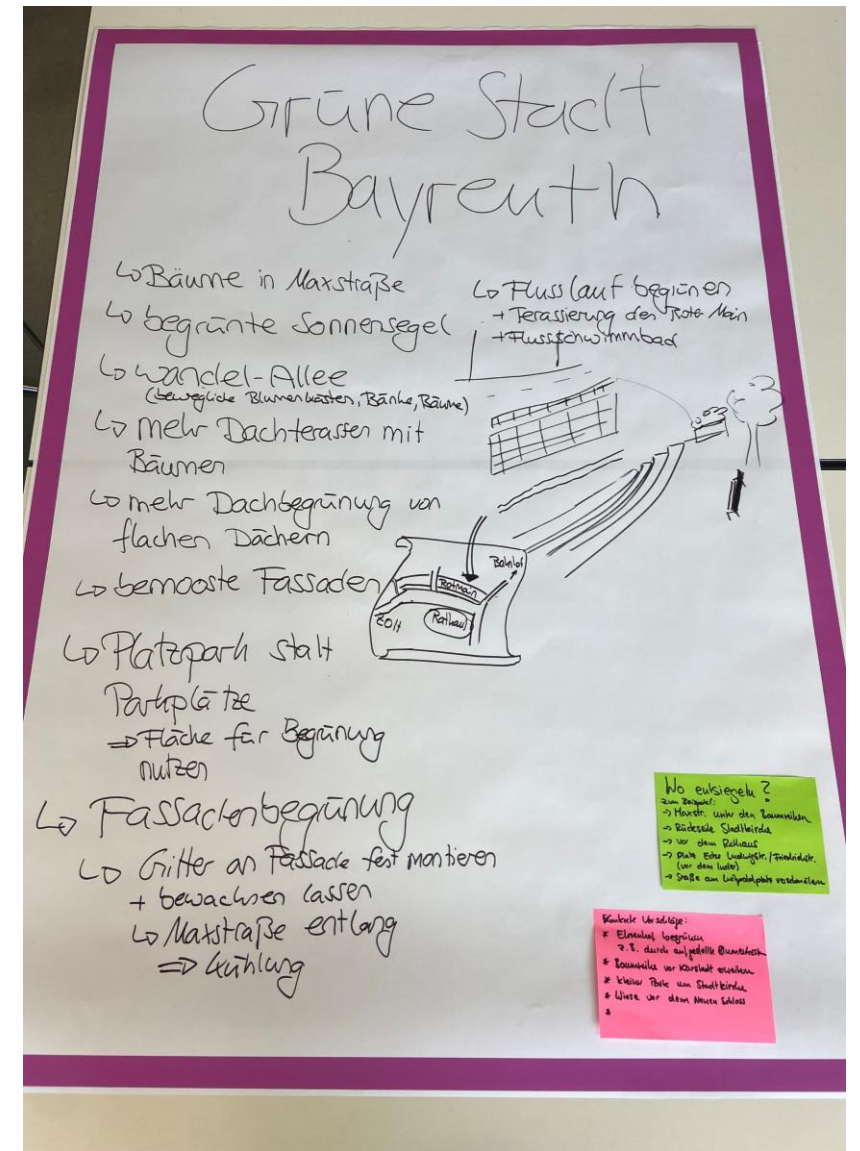 Grüne Stadt
Bayreuth
↳ Bäume in Maxstraße
↳ begrünte Sonnensegel
↳ Wandel-Allee
(bewegliche Blumenkästen, Bänke, Bäume)
↳ mehr Dachterassen mit
Bäumen
↳ mehr Dachbegrünung von
flachen Dächern
↳ bemooste Fassaden
↳ Platzpark statt
Parkplätze
⇒ Fläche für Begrünung
nutzen
↳ Fassadenbegrünung
↳ Gitter an Fassade fest montieren
+ bewachsen lassen
↳ Maxstraße entlang
⇒ Kühlung
↳ Flusslauf begrünen
+ Terassierung des Rote Main
+ Flussschwimmbad
Bahnhof
Rotmain
ZOH
Rathaus
Wo entsiegeln?
zum Beispiel:
→ Maxstr. unter den Baumreihen
→ Rückseite Stadtkirche
→ vor dem Rathaus
→ Platz Ecke Ludwigstr./Friedrichstr.
(vor dem
→ Straße am Luitpoldplatz verschmälern
Konkrete Vorschläge:
* Ehrenhof begrünen
z.B. durch aufgestellte
* Baumreihe vor Karstadt erweitern
* kleiner Park um Stadtkirche
* Wiese vor dem Neuen Schloss
*